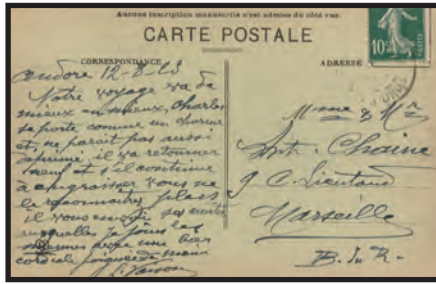 Aucune inscription manuscrite n'est admise du côté vue.
CARTE POSTALE
CORRESPONDANCE
ADRESSE
10c
andore 12-8-
Notre voyage va de
mieux en mieux, Charles
se porte comme un charme
et, ne parait pas aussi
il va retourner
neuf et s'il continue
à engraisser vous ne
le reconnaitrez plus
il vous envoi ses
auxquelles je joins les
miennes avec une bien
cordiale poignée de main
Mme & Mr
Ant. Chaine
9 C. Lieutaud
Marseille
B. du R.